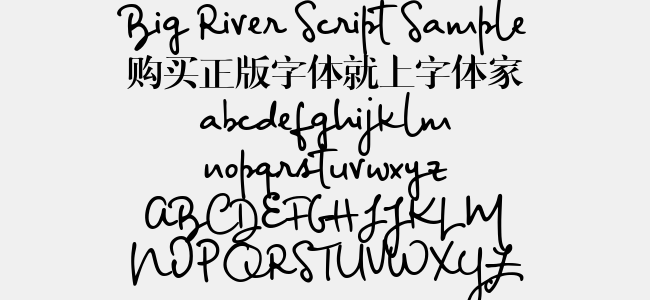 Big River Script Sample
购买正版字体就上字体家
abcdefghijklm
nopqrstuvwxyz
ABCDEFGHIJKLM
NOPQRSTUVWXYZ